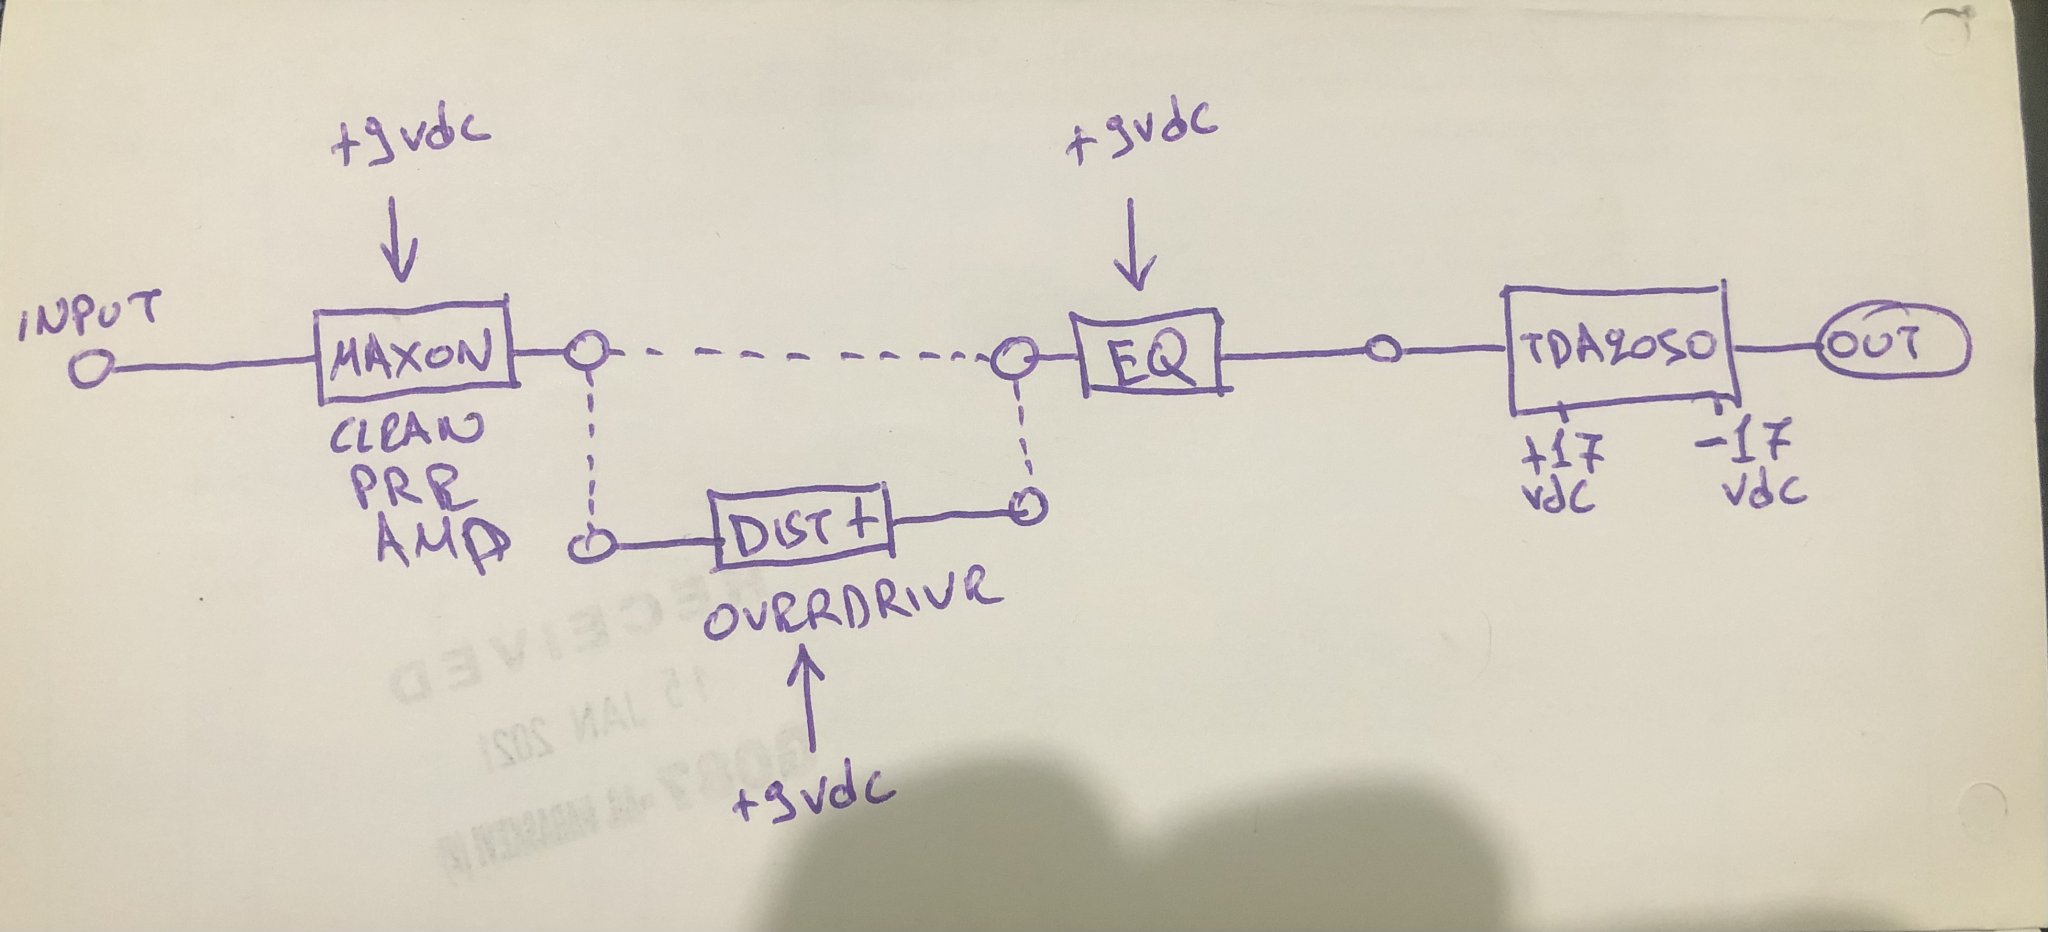 +9vdc
+9vdc
INPUT
MAXON
EQ
TDA2050
OUT
CLEAN
PRE
AMP
+17
vdc
-17
vdc
DIST+
OVERDRIVE
+9vdc
RECEIVED
15 JAN 2021